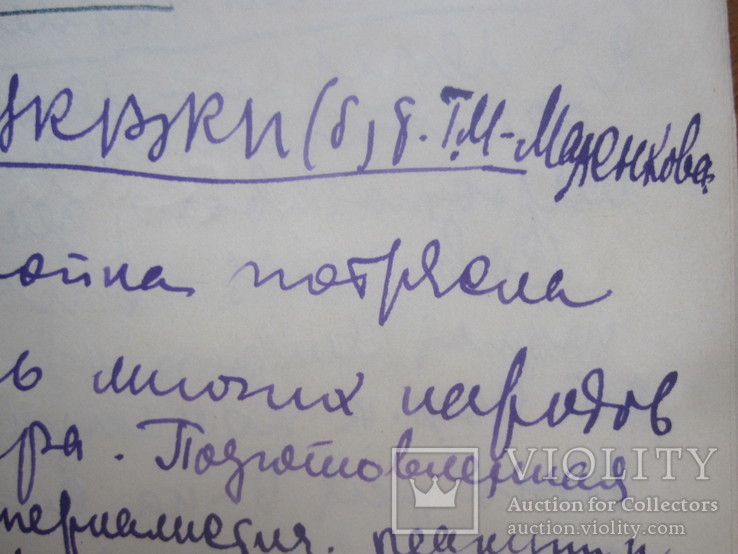 ЦК ВЖКП(б) т. Г.М. Маленкова
ойна потрясла
ь многих народов
ра. Подготовленная
периалистич. реакции
VIOLITY
Auction for Collectors
auction.violity.com